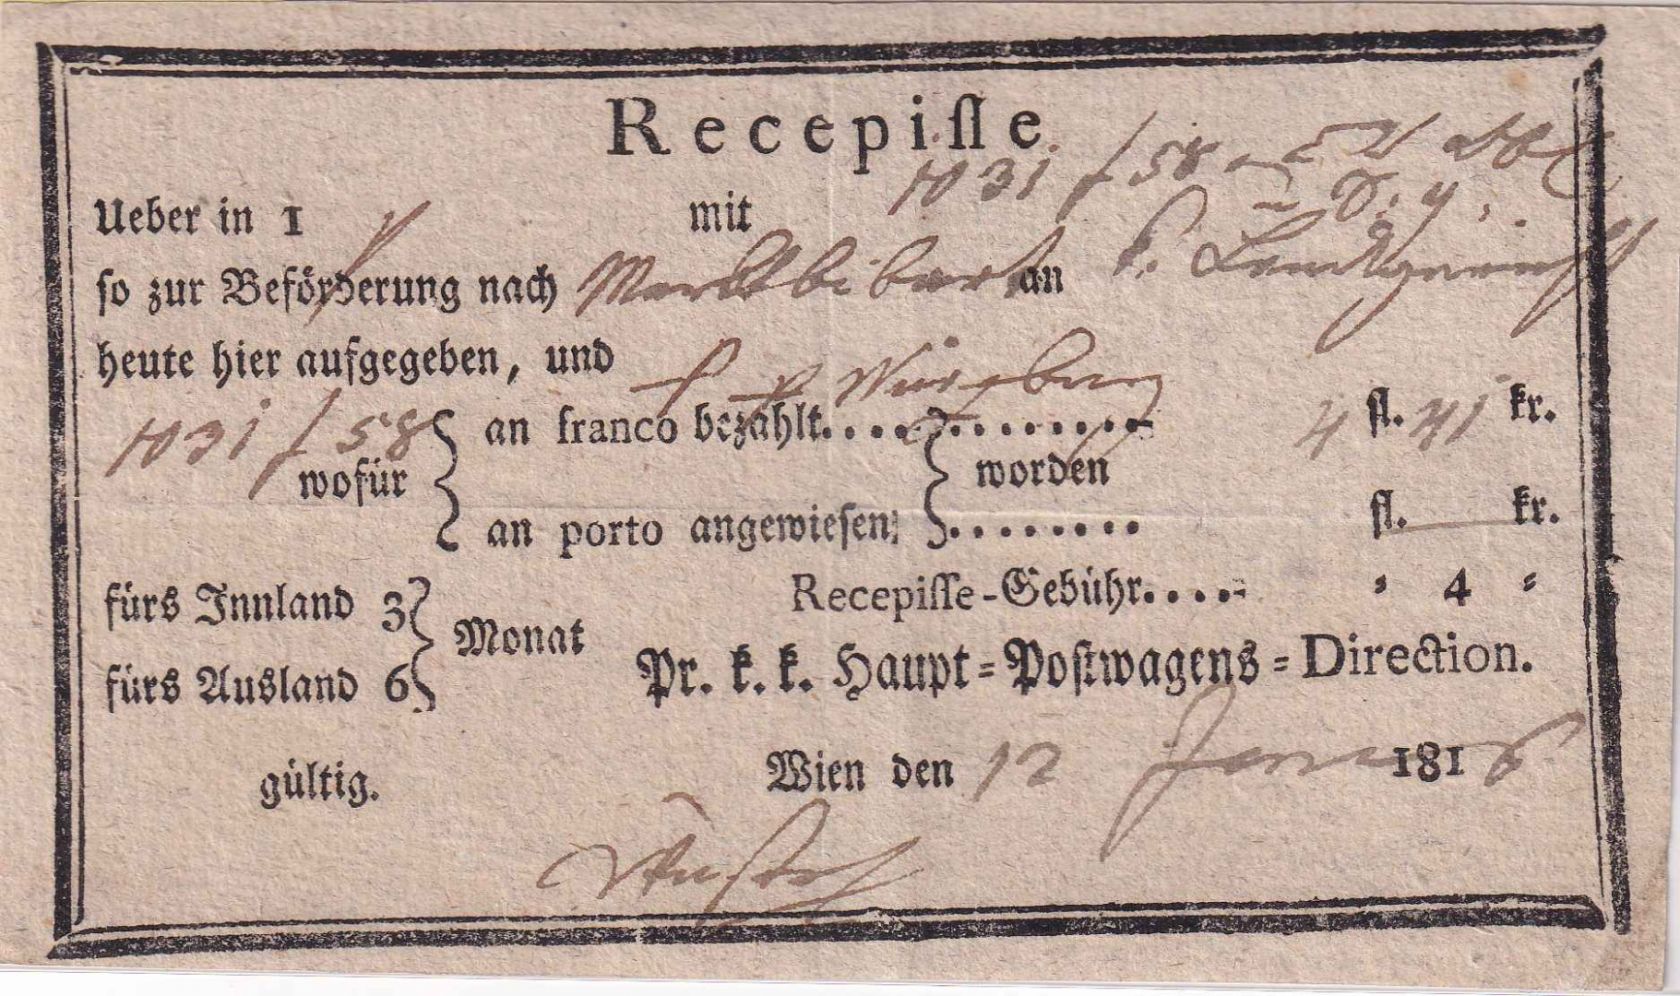 Recepiſſe
1031 f 58
Ueber in 1 mit
ſo zur Beförderung nach Marktbibart an
heute hier aufgegeben, und
p Würzburg
1031 f 58
wofür { an franco bezahlt............ } worden 4 fl. 41 kr.
{ an porto angewieſen; }........ fl. — kr.
fürs Innland 3 } Monat Recepiſſe-Gebühr..... " 4 "
fürs Ausland 6 }
Pr. k. k. Haupt-Poſtwagens-Direction.
gültig. Wien den 12 1816